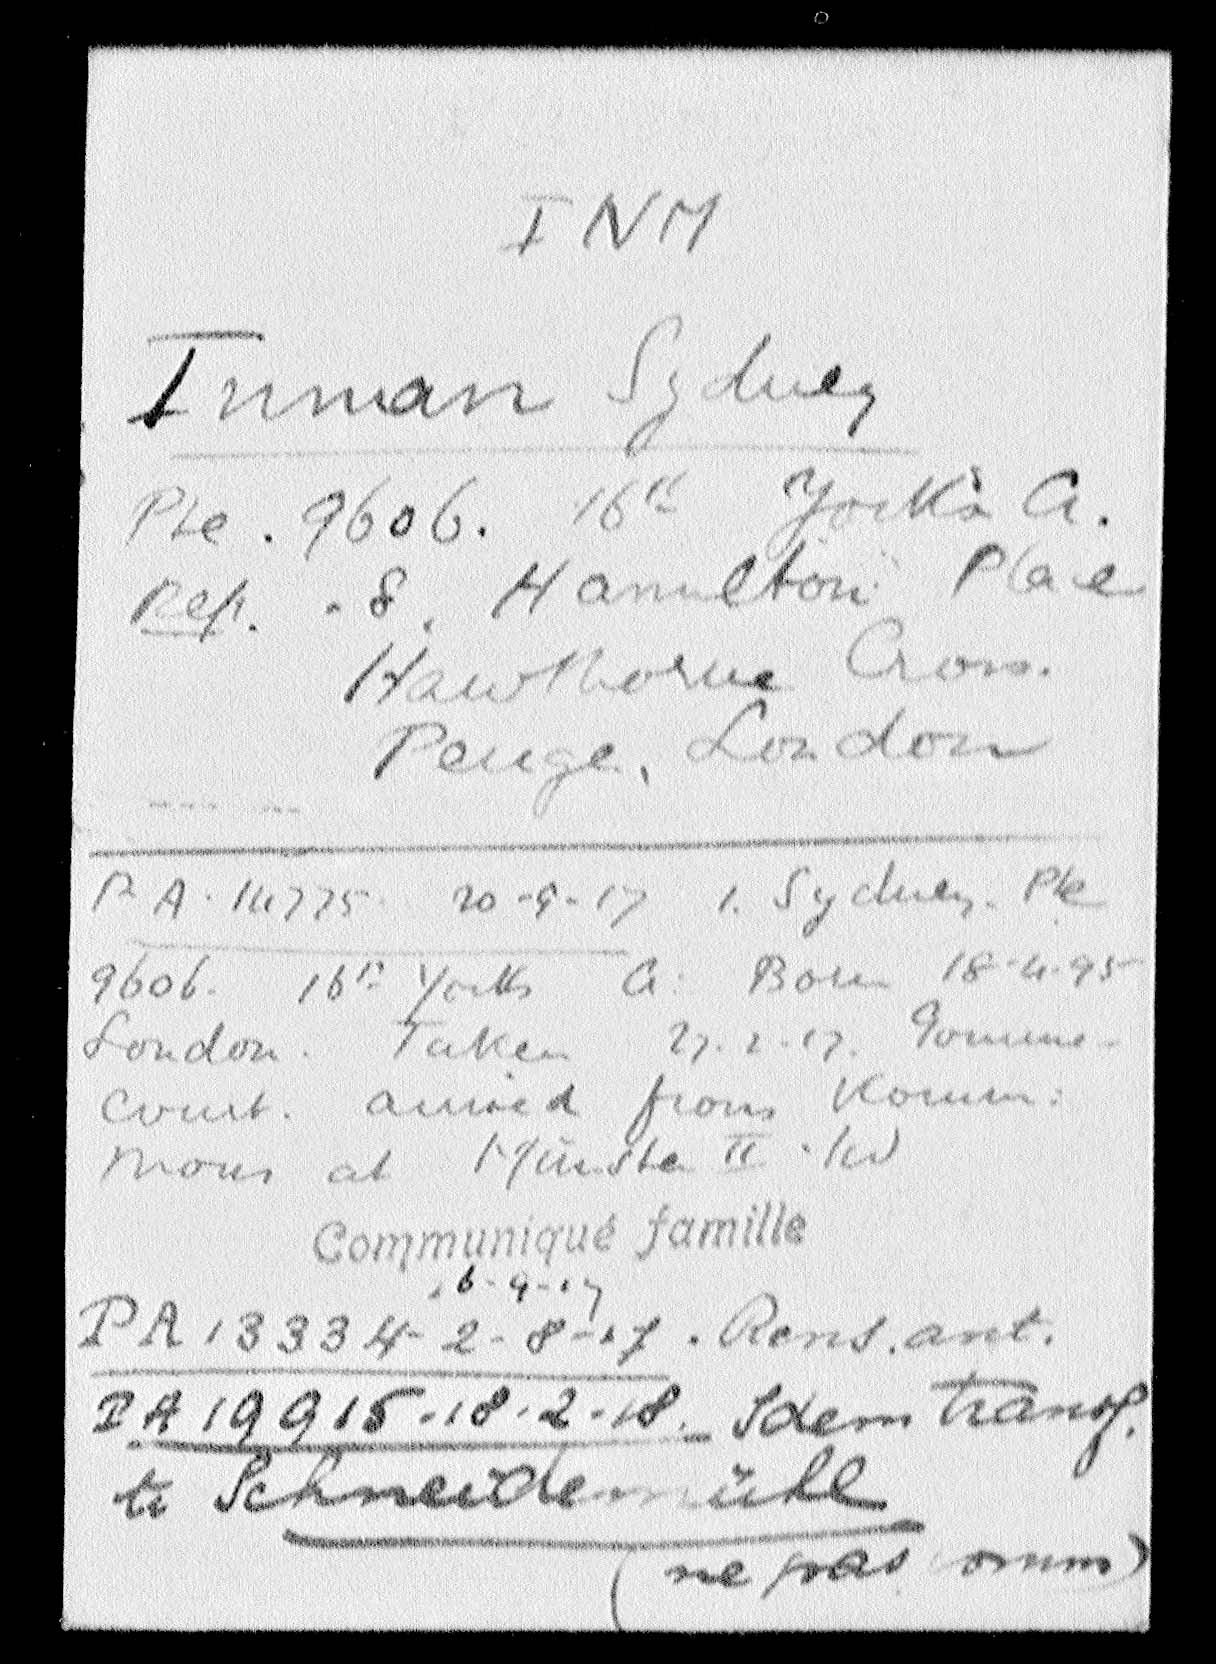 INM
Inman Sydney
Pte. 9606. 16th Yorks A.
Rep. 8. Hamilton Place
Hawthorne Cross.
Penge, London
PA. 14775 20-9-17 I. Sydney. Pte
9606. 16th Yorks A: Born 18-4-95
London. Taken 27.2.17. Gomme-
court. arrived from Komm:
Mons at Münster II.
Communiqué famille
6-9-17
PA 13334-2-8-17. Rens. ant.
PA 19915-18-2-18. Idem transf.
to Schneidemühl
(ne pas comm)